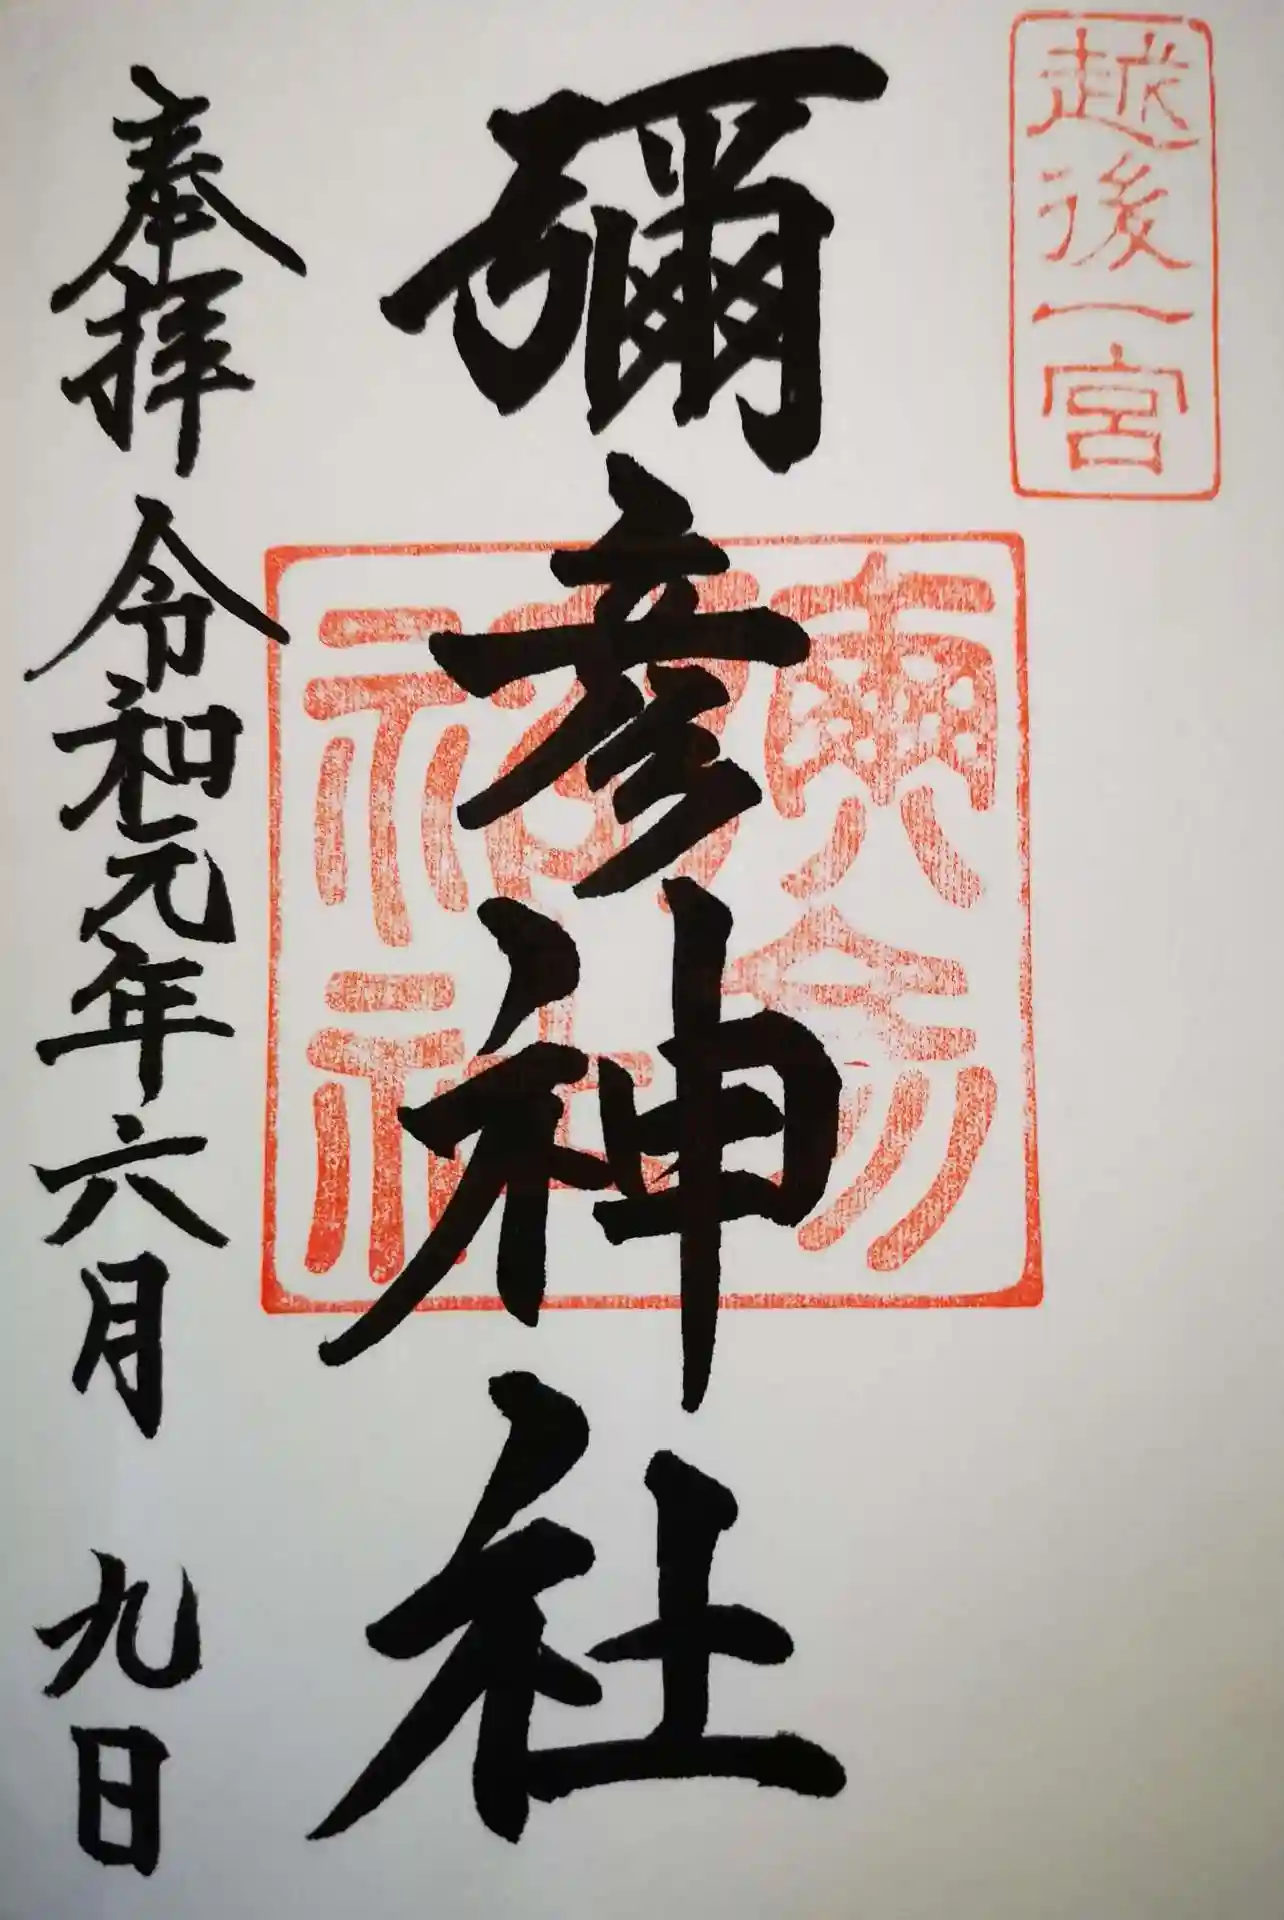 越後一宮
彌彦神社
奉拝 令和元年六月九日